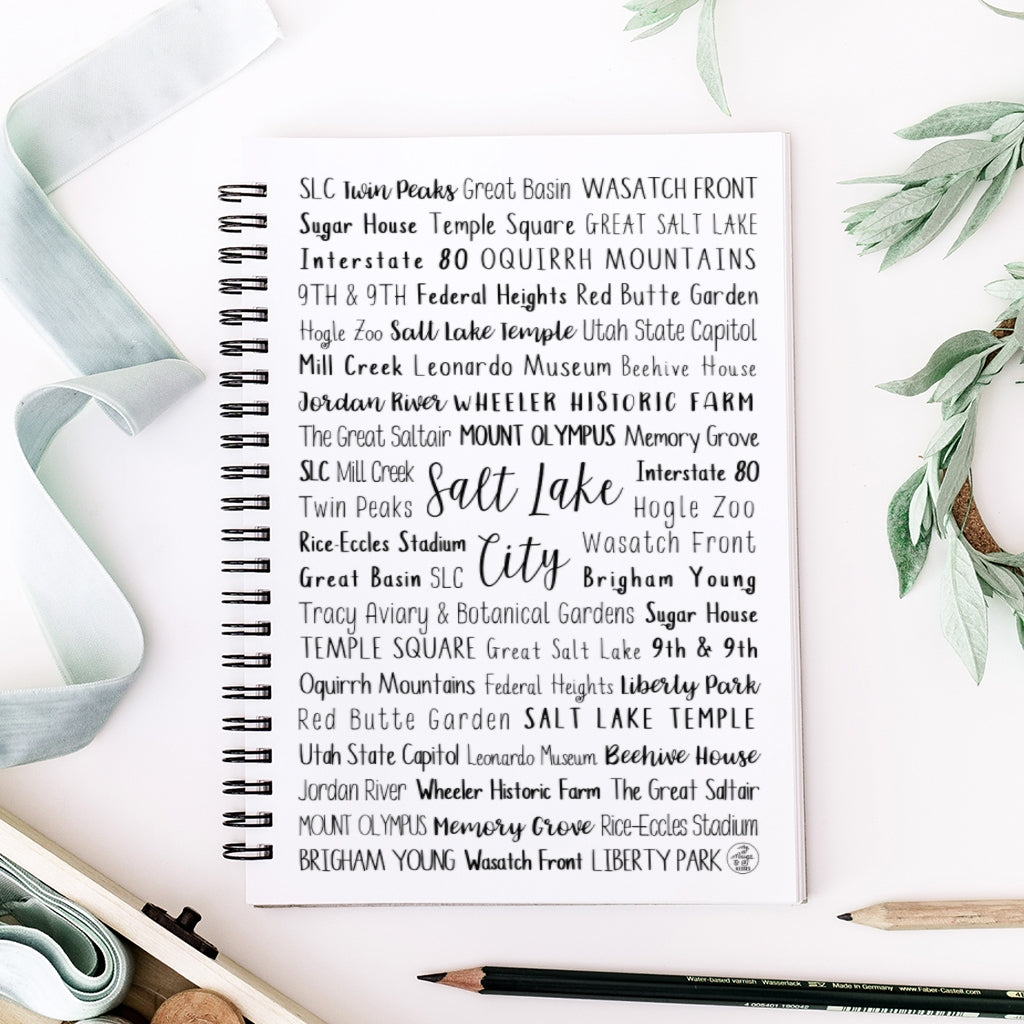 SLC Twin Peaks Great Basin WASATCH FRONT
Sugar House Temple Square GREAT SALT LAKE
Interstate 80 OQUIRRH MOUNTAINS
9TH & 9TH Federal Heights Red Butte Garden
Hogle Zoo Salt Lake Temple Utah State Capitol
Mill Creek Leonardo Museum Beehive House
Jordan River WHEELER HISTORIC FARM
The Great Saltair MOUNT OLYMPUS Memory Grove
SLC Mill Creek
Twin Peaks
Salt Lake
Interstate 80
Hogle Zoo
Rice-Eccles Stadium
Great Basin SLC
City
Wasatch Front
Brigham Young
Tracy Aviary & Botanical Gardens Sugar House
TEMPLE SQUARE Great Salt Lake 9th & 9th
Oquirrh Mountains Federal Heights Liberty Park
Red Butte Garden SALT LAKE TEMPLE
Utah State Capitol Leonardo Museum Beehive House
Jordan River Wheeler Historic Farm The Great Saltair
MOUNT OLYMPUS Memory Grove Rice-Eccles Stadium
BRIGHAM YOUNG Wasatch Front LIBERTY PARK
Water-based varnish Wasserlack Made in Germany www.Faber-Castell.com
4 005401 190042